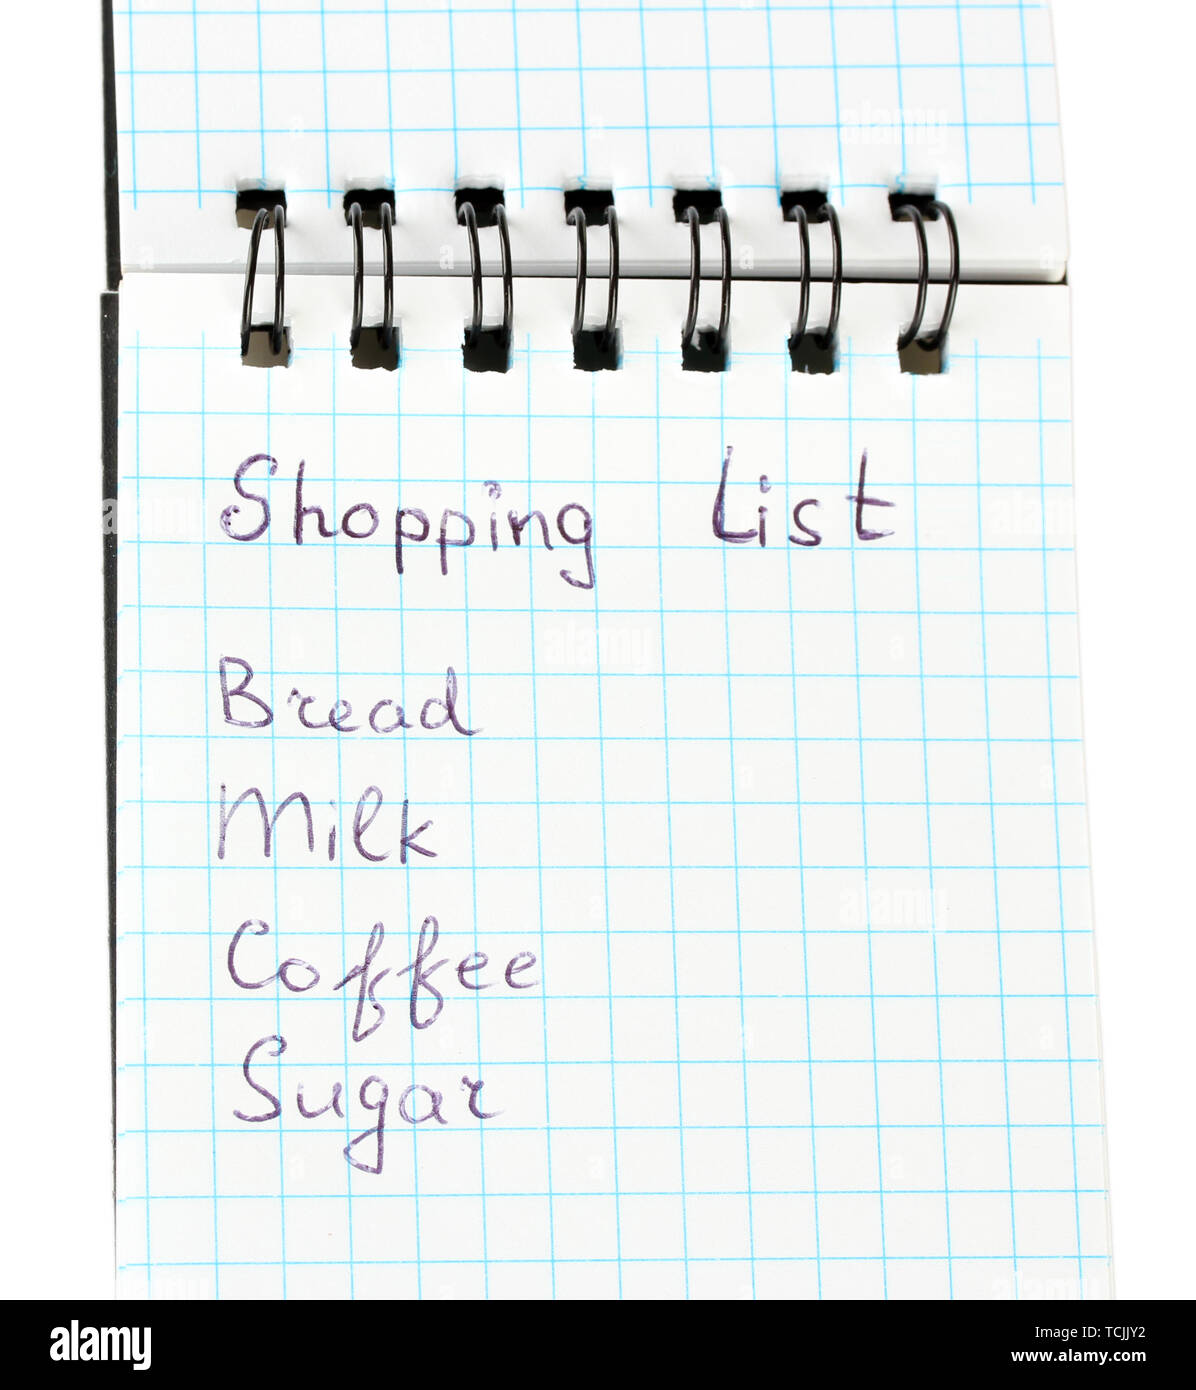 Shopping List
Bread
Milk
Coffee
Sugar
alamy
Image ID: TCJJY2
www.alamy.com